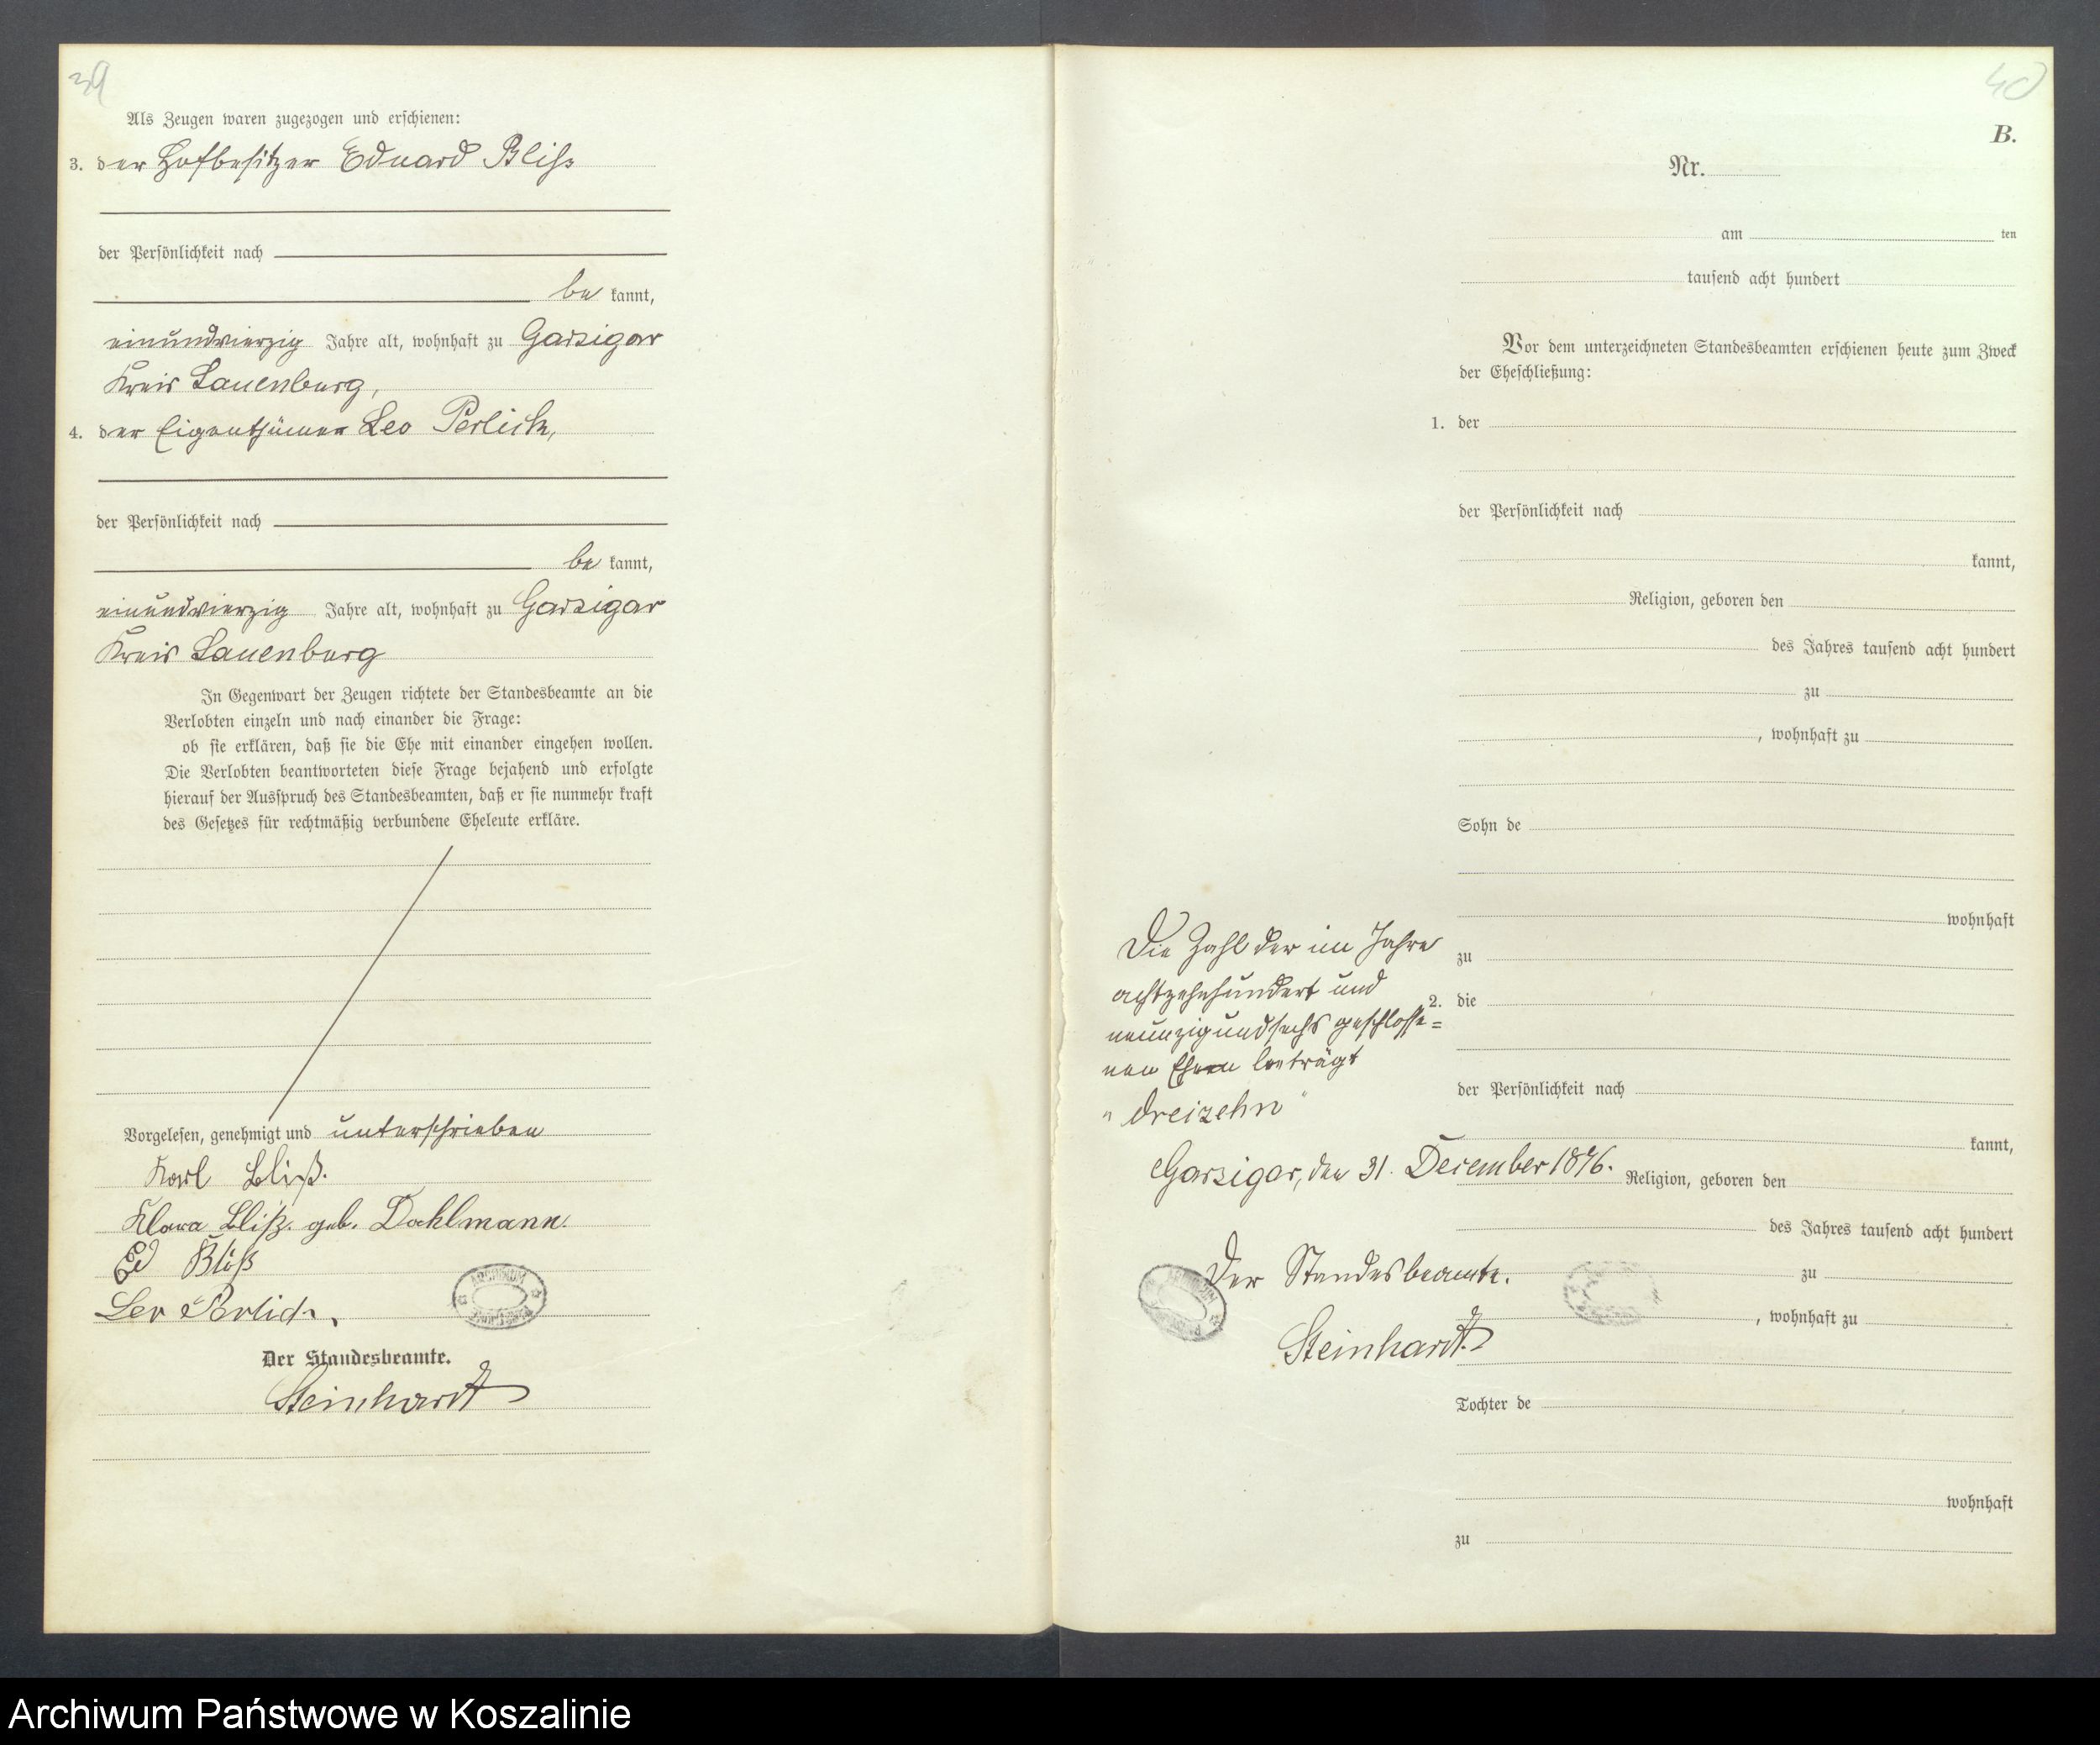 39
Als Zeugen waren zugezogen und erschienen:
3. der Hofbesitzer Eduard Bliß
der Persönlichkeit nach
be kannt,
einundvierzig Jahre alt, wohnhaft zu Garzigar
Kreis Lauenburg,
4. der Eigenthümer Leo Perlick,
der Persönlichkeit nach
be kannt,
einundvierzig Jahre alt, wohnhaft zu Garzigar
Kreis Lauenburg
In Gegenwart der Zeugen richtete der Standesbeamte an die
Verlobten einzeln und nach einander die Frage:
ob sie erklären, daß sie die Ehe mit einander eingehen wollen.
Die Verlobten beantworteten diese Frage bejahend und erfolgte
hierauf der Ausspruch des Standesbeamten, daß er sie nunmehr kraft
des Gesetzes für rechtmäßig verbundene Eheleute erkläre.
Vorgelesen, genehmigt und unterschrieben
Karl Bliß.
Klara Bliß. geb. Dahlmann.
Ed Bliß
Leo Perlick
ARCHIWUM
Der Standesbeamte.
Steinhardt
40
B.
Nr.
am ten
tausend acht hundert
Vor dem unterzeichneten Standesbeamten erschienen heute zum Zweck
der Eheschließung:
1. der
der Persönlichkeit nach
kannt,
Religion, geboren den
des Jahres tausend acht hundert
zu
, wohnhaft zu
Sohn de
wohnhaft
zu
2. die
der Persönlichkeit nach
kannt,
Religion, geboren den
des Jahres tausend acht hundert
zu
, wohnhaft zu
Tochter de
wohnhaft
zu
Die Zahl der im Jahre
achtzehnhundert und
neunzigundsechs geschlosse=
nen Ehen beträgt
"dreizehn"
Garzigar, den 31. Dezember 1896.
Der Standesbeamte.
Steinhardt
Archiwum Państwowe w Koszalinie